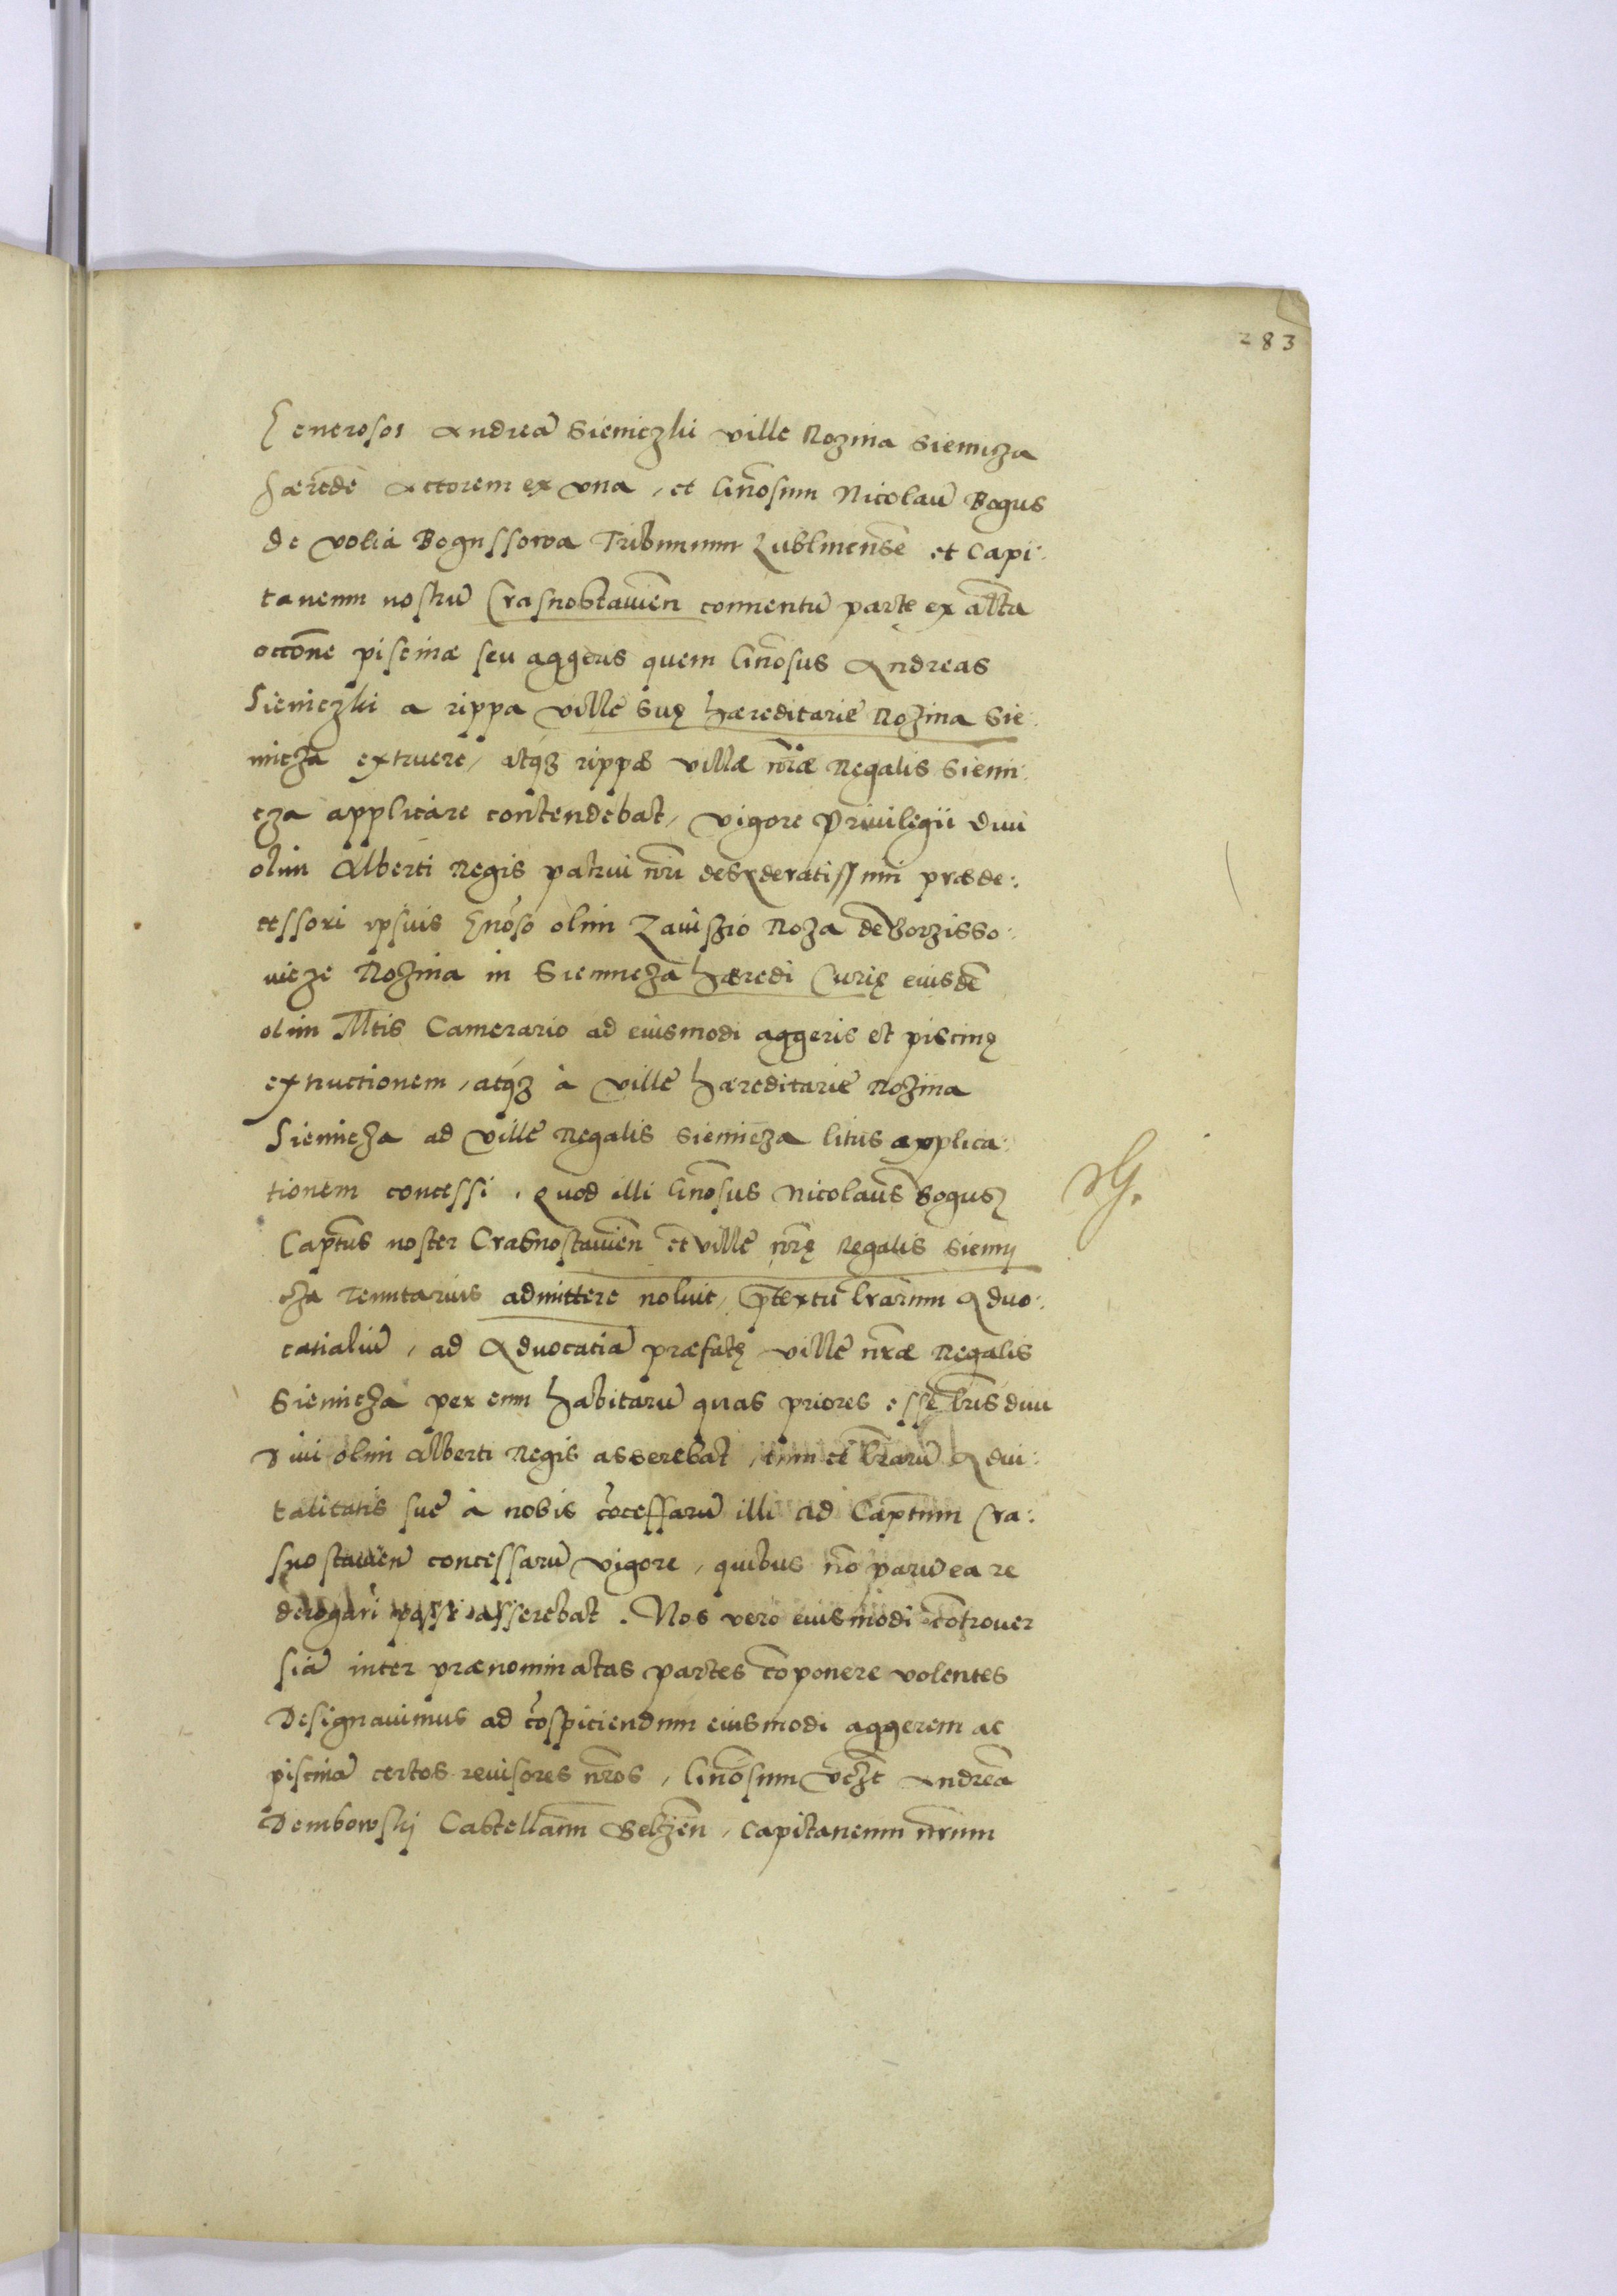 283
Generosos Andreā Siemiczki ville Rozina Siemicza
hæredē Actorem ex vna, et Gn̄osum Nicolaū Bogus
de Volia Bogussowa Tribunum Lublinensē et Capi:
taneum nostrū Crasnostauien̄ conuentū partę ex alt̄a
occōne piscinæ seu aggeris quem Gn̄osus Andreas
Siemiczki a rippa ville suę hæreditarie Rozina Sie:
micza extruere, atq3 rippæ villæ nr̄æ Regalis Siemi:
cza applicare contendebat, vigore Priuilegii diui
olim Alberti Regis patrui nr̄i desyderatissimi præde:
cessori ipsius Gnōso olim Zauiszio Roza de Borzisso:
uicze Rozina in Siemicza hæredi Curię eiusdē
olim M̄tis Camerario ad eiusmodi aggeris et piscinę
extructionem, atq3 à ville hæreditarie Rozina
Siemicza ad ville Regalis Siemicza litus applica:
tionem concessi. Quod illi Gn̄osus Nicolaus Bogusz
Capt̄us noster Crasnostauien̄ et ville nr̄ę Regalis Siemi
cza Tenutarius admittere noluit, p̄textu lr̄arum Aduo:
catialiū, ad Aduocatiā præfatę ville nr̄æ Regalis
Siemicza per eum habitarū quas priores esse lr̄is diui
Diui olim Alberti Regis asserebat, tum et lr̄arū Adui:
talitatis sue à nobis cōcessarū illi ad Capt̄um Cra:
snostauien̄ concessarū vigore, quibus nō parū ea re
derogari posse asserebat. Nos vero eiusmodi cōtrouer
siā inter prænominatas partes cōponere volentes
Designauimus ad cōspiciendum eiusmodi aggerem ac
piscinā certos reuisores nr̄os, Gn̄osum vczt Andreā
Dembowskj Castellanū Belzen̄, Capitaneum nr̄um